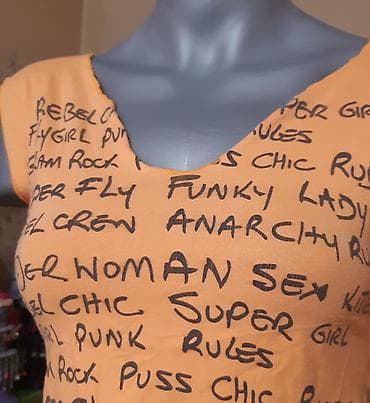 REBEL PER GIR
FLYGIRL PUN RULES
GLAM ROCK S CHIC RU
PER FLY FUNKY LADY
EL CREW ANARCHY RU
DERWOMAN SEX KIT
EL CHIC SUPER GIRL
RL PUNK RULES
M ROCK PUSS CHIC